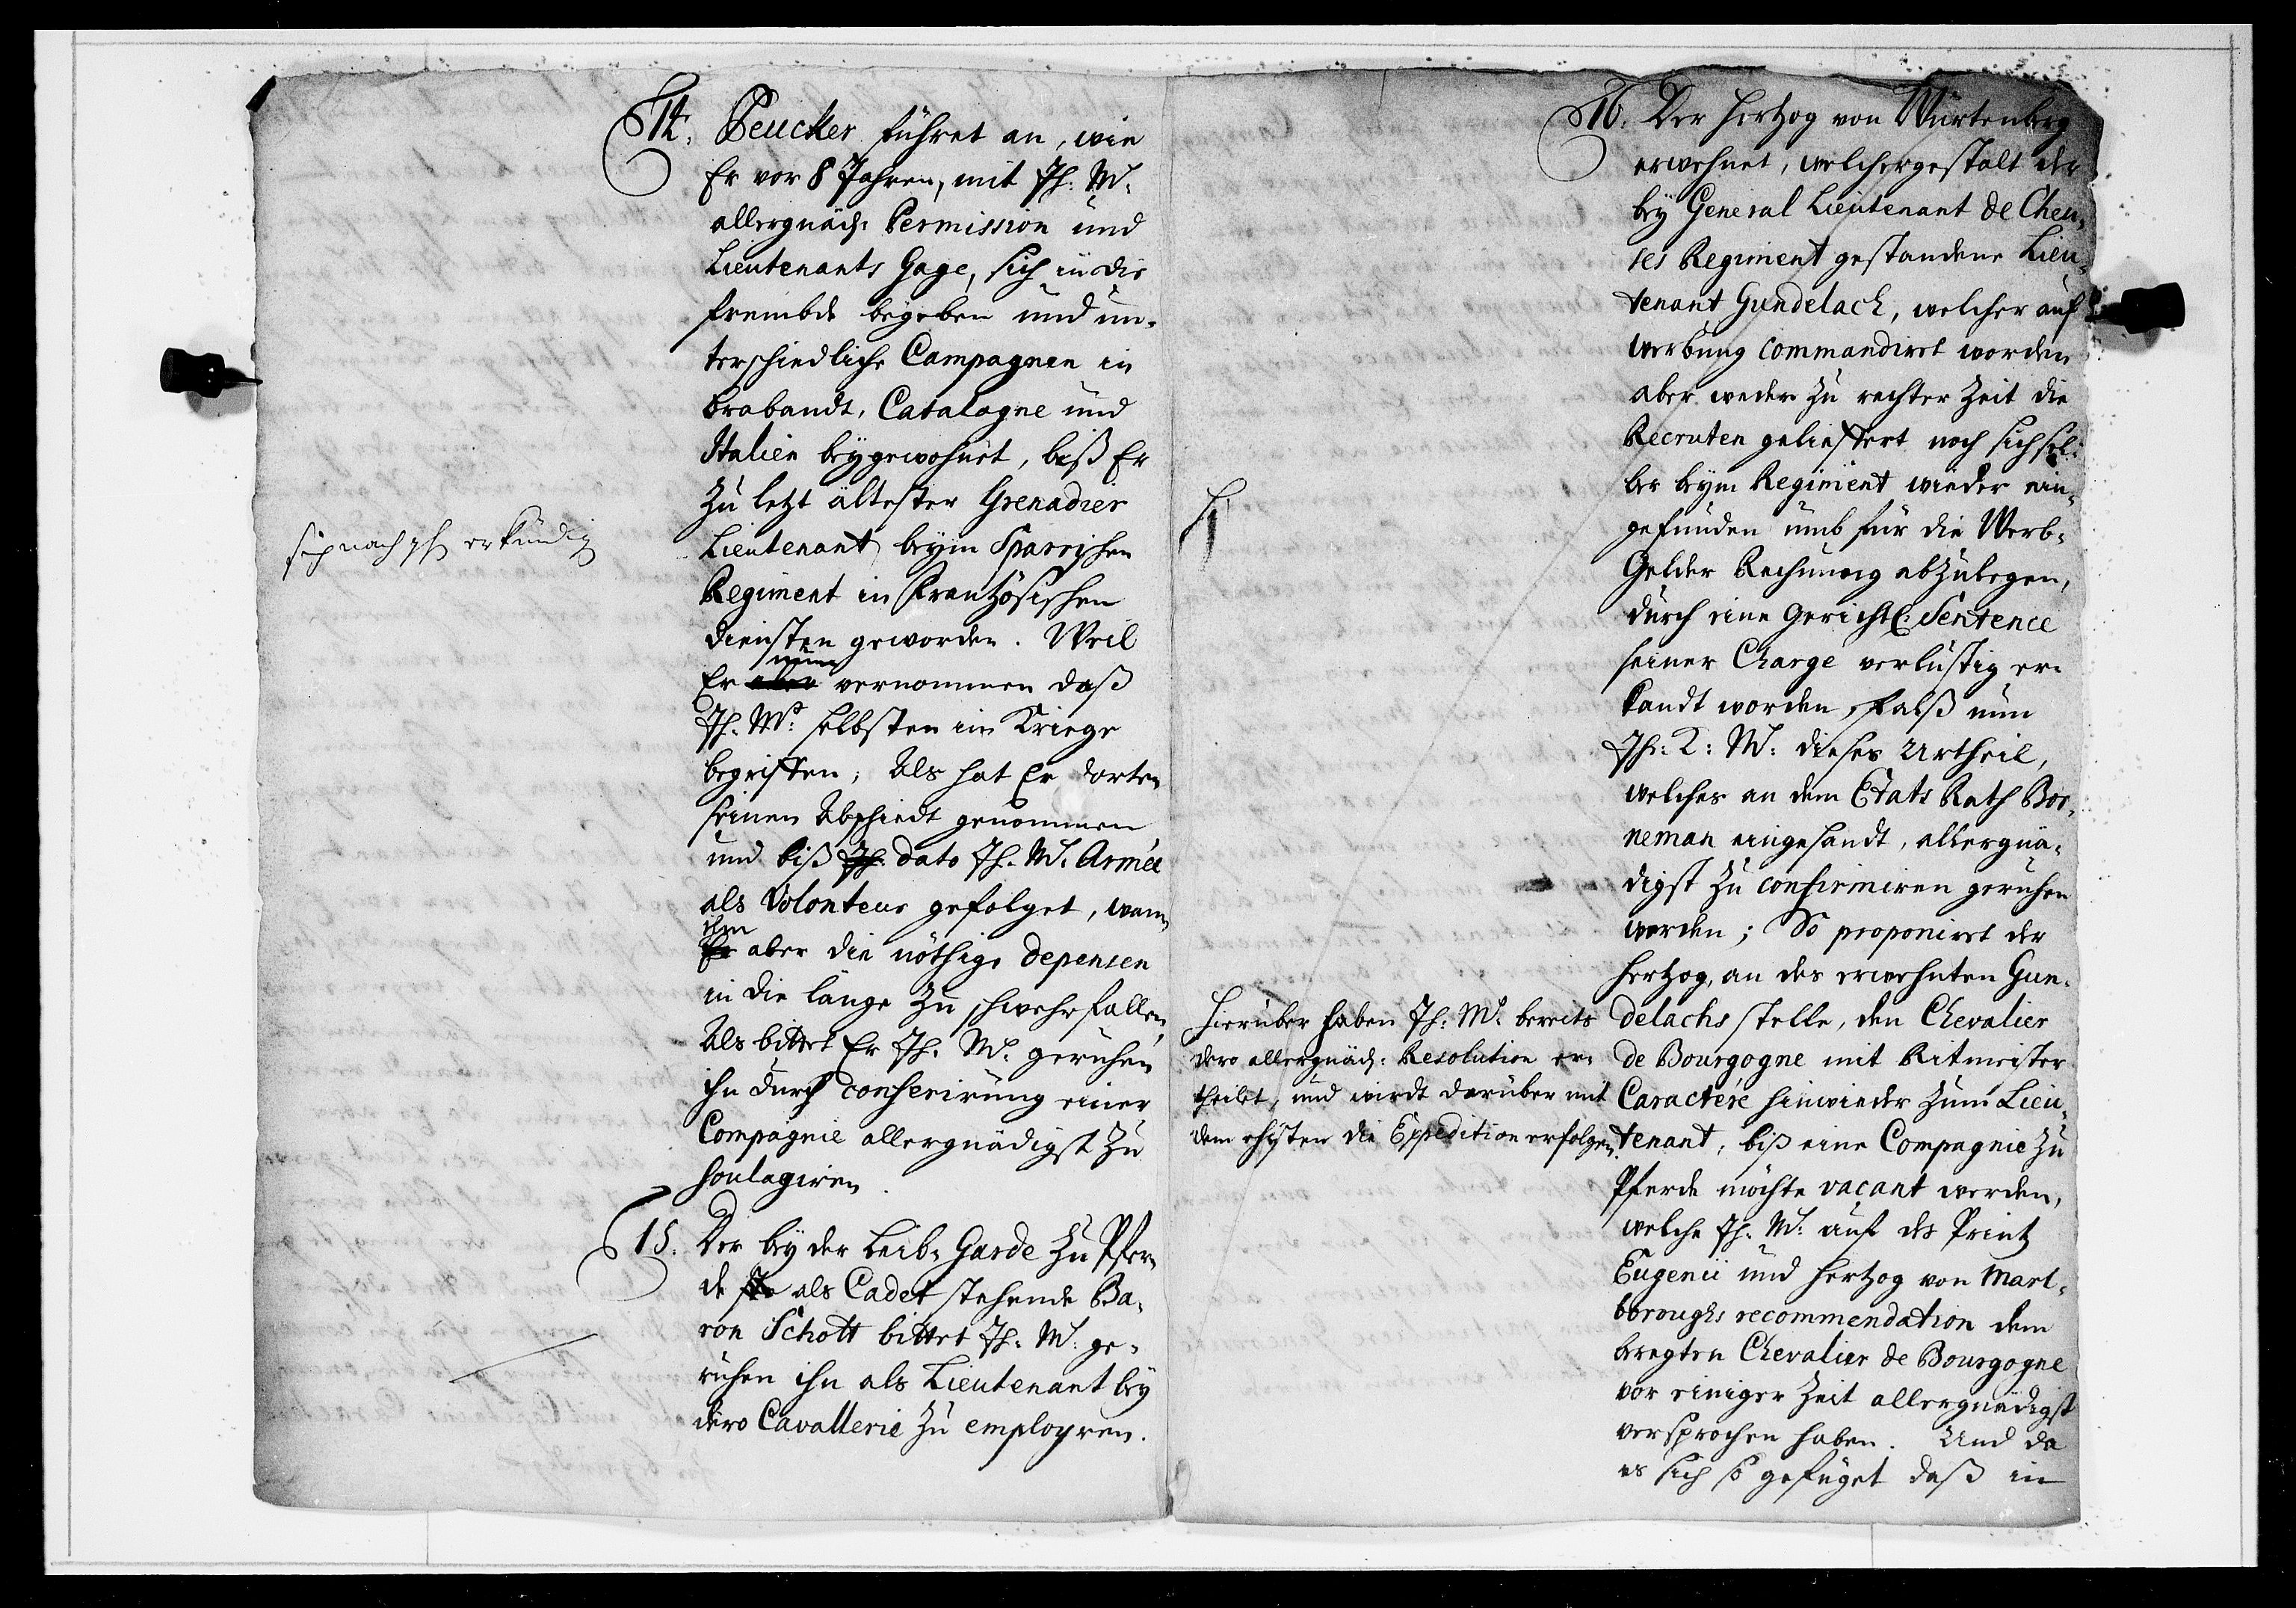 14. Beucker führet an, wie
Er vor 8 Jahren, mit Jh: M:
allergnäd: Permission und
Lieutenants Gage, sich in die
frembde begeben und un-
terschiedliche Campagnen in
Brabandt, Catalogne und
Italien beygewohnet, biß Er
zu letzt ältester Grenadier
Lieutenant beym Sparrischen
Regiment in Frantzösischen
diensten geworden. Weil
Er nun vernommen daß
Jh. M: selbsten im Kriege
begriffen; Als hat Er dorten
seinen Abschiedt genommen
und biß dato Jh. M. Armée
als Volonteur gefolget, wann
ihm aber die nöthige depensen
in die länge zu schwehr fallen,
Als bittet Er Jh. M. geruhen
ihn durch conferirung einer
Compagnie allergnädigst zu
soulagiren.
sich nach erkundig
15. Der bey der Leib-Garde zu Pfer-
de als Cadet stehende Ba-
ron Schott bittet Jh. M: ge-
ruhen ihn als Lieutenant bey
dero Cavallerie zu employren.
16. Der Hertzog von Würtenberg
erwehnet, welchergestalt der
bey General Lieutenant de Cheu-
ses Regiment gestandene Lieu-
tenant Gundelach, welcher auf
Werbung commandiret worden
aber weder zu rechter Zeit die
Recruten geliefert noch sich sel-
ber beym Regiment wieder ein-
gefunden umb für die Werb-
Gelder Rechnung abzulegen,
durch eine Gerichtl. Sentence
seiner Charge verlustig er-
kandt worden, Falß nun
Jh: K: M: dieses Urtheil,
welches an dem Etats Rath Bor-
neman eingesandt, allergnä-
digst zu confirmiren geruhen
werden; So proponiret der
Hertzog, an des erwehnten Gun-
delachs stelle, den Chevalier
de Bourgogne mit Ritmeister
Caractére hinwieder zum Lieu-
tenant, biß eine Compagnie zu
Pferde möchte vacant werden,
welche Jh. M: auf des Printz
Eugenii und Hertzog von Marl-
boroughs recommendation dem
beregten Chevalier de Bourgogne
vor einiger Zeit allergnädigst
versprochen haben. Und da
es sich so gefüget daß in
Hierüber haben Jh: M: bereits
dero allergnäd: Resolution er-
theilet, und wirdt darüber mit
dem ehisten die Expedition erfolgen.